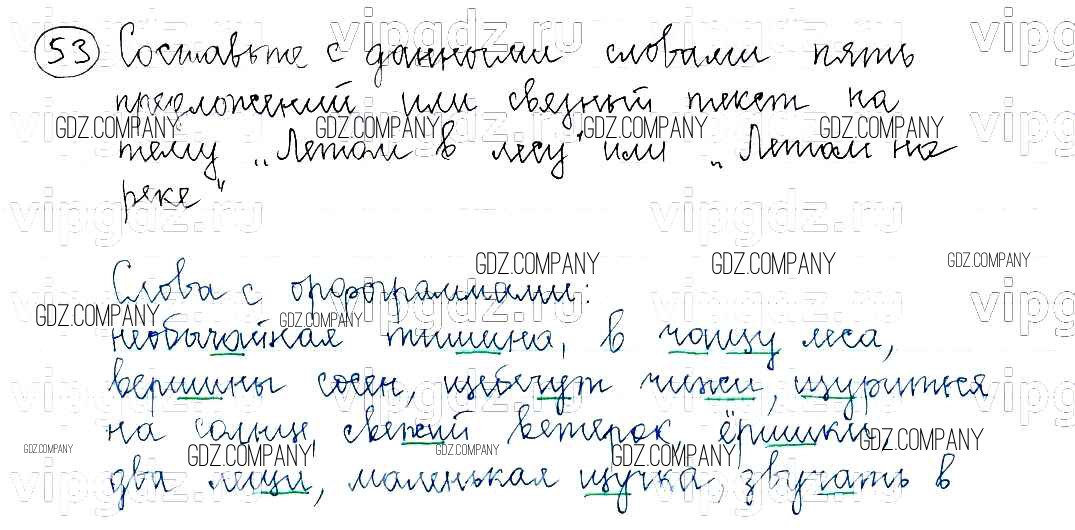 53 Составьте с данными словами пять
предложений или связный текст на
тему „Летом в лесу" или „Летом на
реке"
Слова с орфограммами:
необычайная тишина, в чащу леса,
вершины сосен, щебечут чижи, щуриться
на солнце, свежий ветерок, ёршики,
два леща, маленькая щучка, звучать в